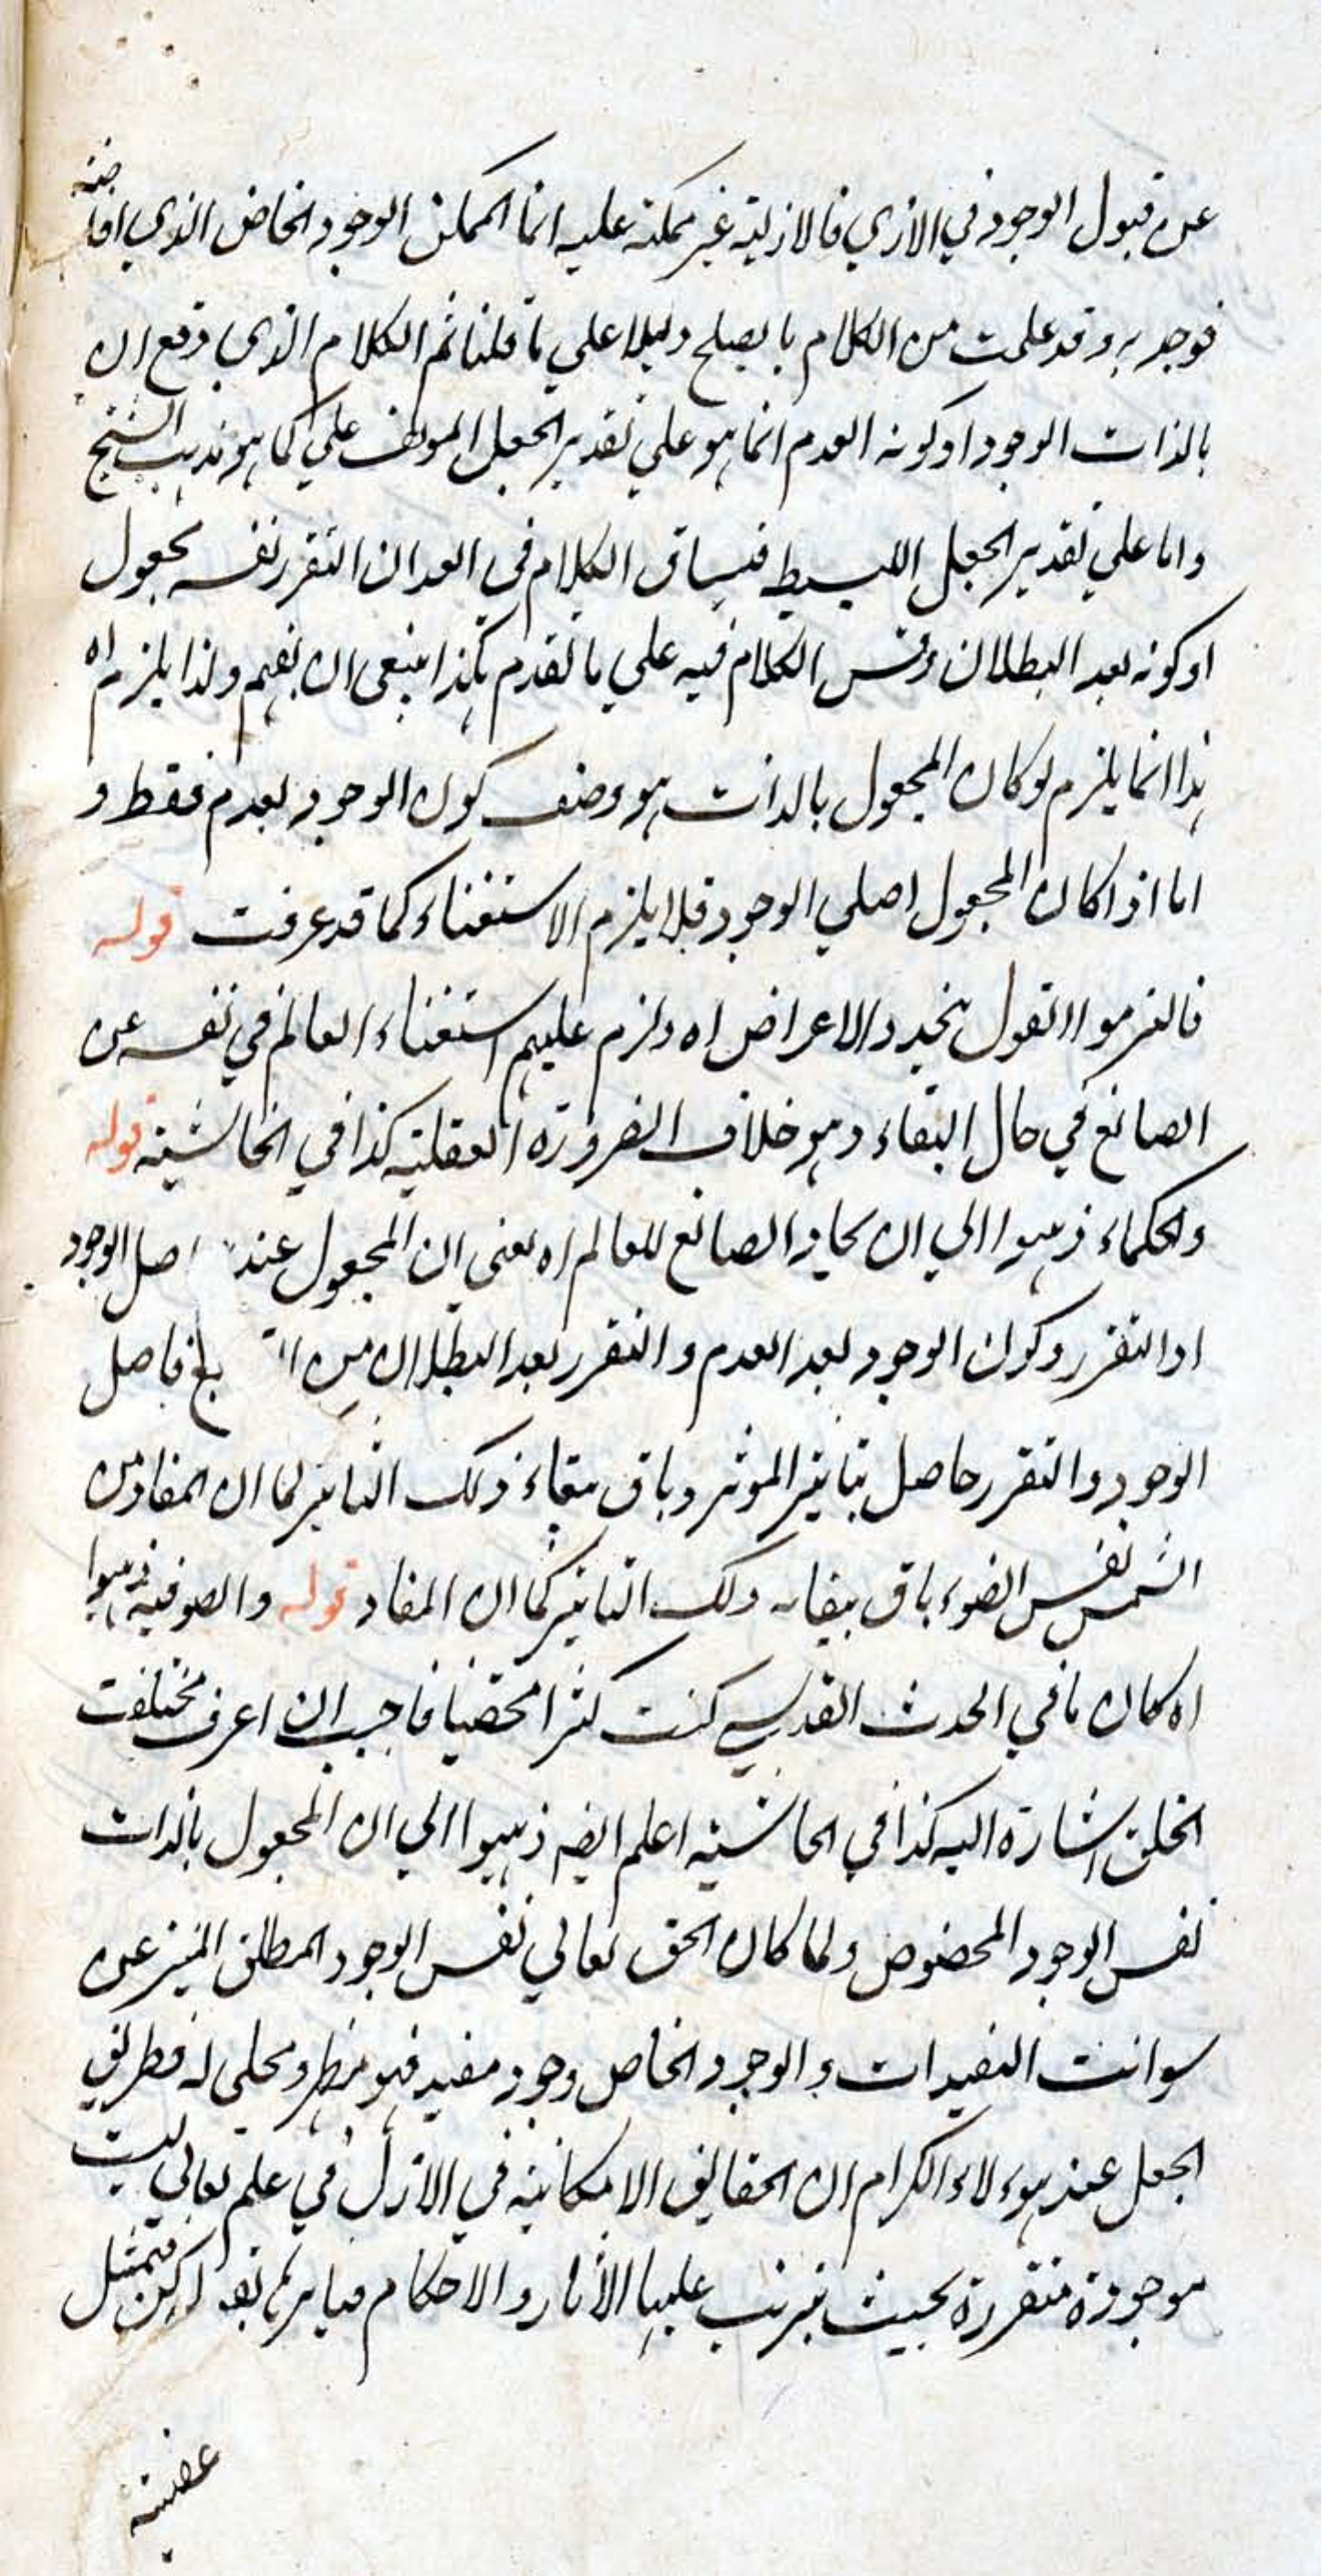 عن قبول الوجود في الازلي فالازلية غير ممكنة عليه انما الممكن الوجود الخاص الذي افاضه
فوجد به وقد علمت من الكلام ما يصلح دليلا على ما قلنا ثم الكلام الذي وقع ان
بالذات الوجود او كونه العدم انما هو على تقدير الجعل المولف على كما هو مذهب الشيخ
واما على تقدير الجعل البسيط فيساق الكلام في العد ان التقرر نفسه مجعول
او كونه بعد البطلان وقس الكلام فيه على ما تقدم هكذا ينبغي ان يفهم ولذا يلزم اه
هذا انما يلزم لو كان المجعول بالذات هو وصف كون الوجود بعدم فقط و
اما اذا كان المجعول اصلي الوجود فلا يلزم الاستغناء كما قد عرفت قوله
فالتزموا القول بتجدد الاعراض اه ولزم عليهم استغناء العالم في نفسه عن
الصانع في حال البقاء وهو خلاف الضرورة العقلية كذا في الحاشية قوله
والحكماء ذهبوا الي ان ايجاد الصانع للعالم اه يعني ان المجعول عند اصل الوجود
او التقرر وكون الوجود بعد العدم والتقرر بعد البطلان من فاصل
الوجود والتقرر حاصل بتاثير الموثر وباق ببقاء ذلك التاثير كما ان المفاد من
الشمس نفس الضوء باق ببقاء ذلك التاثير كما ان المفاد قوله والصوفية ذهبوا
اه كان ما في الحدث القدسي كنت كنزا مخفيا فاحببت ان اعرف فخلقت
الخلق اشارة اليه كذا في الحاشية اعلم ايضه ذهبوا الي ان المجعول بالذات
نفس الوجود المخصوص ولما كان الحق تعالي نفس الوجود المطلق المنزه عن
سوانت التقيدات والوجود الخاص وجود مقيد فهو مظهر ومجلى له فطريق
الجعل عند هوءلاء الكرام ان الحقايق الامكانية في الازل في علم تعالي ليست
موجودة متقررة بحيث يترتب عليها الاثار والاحكام لكن فيتمثل